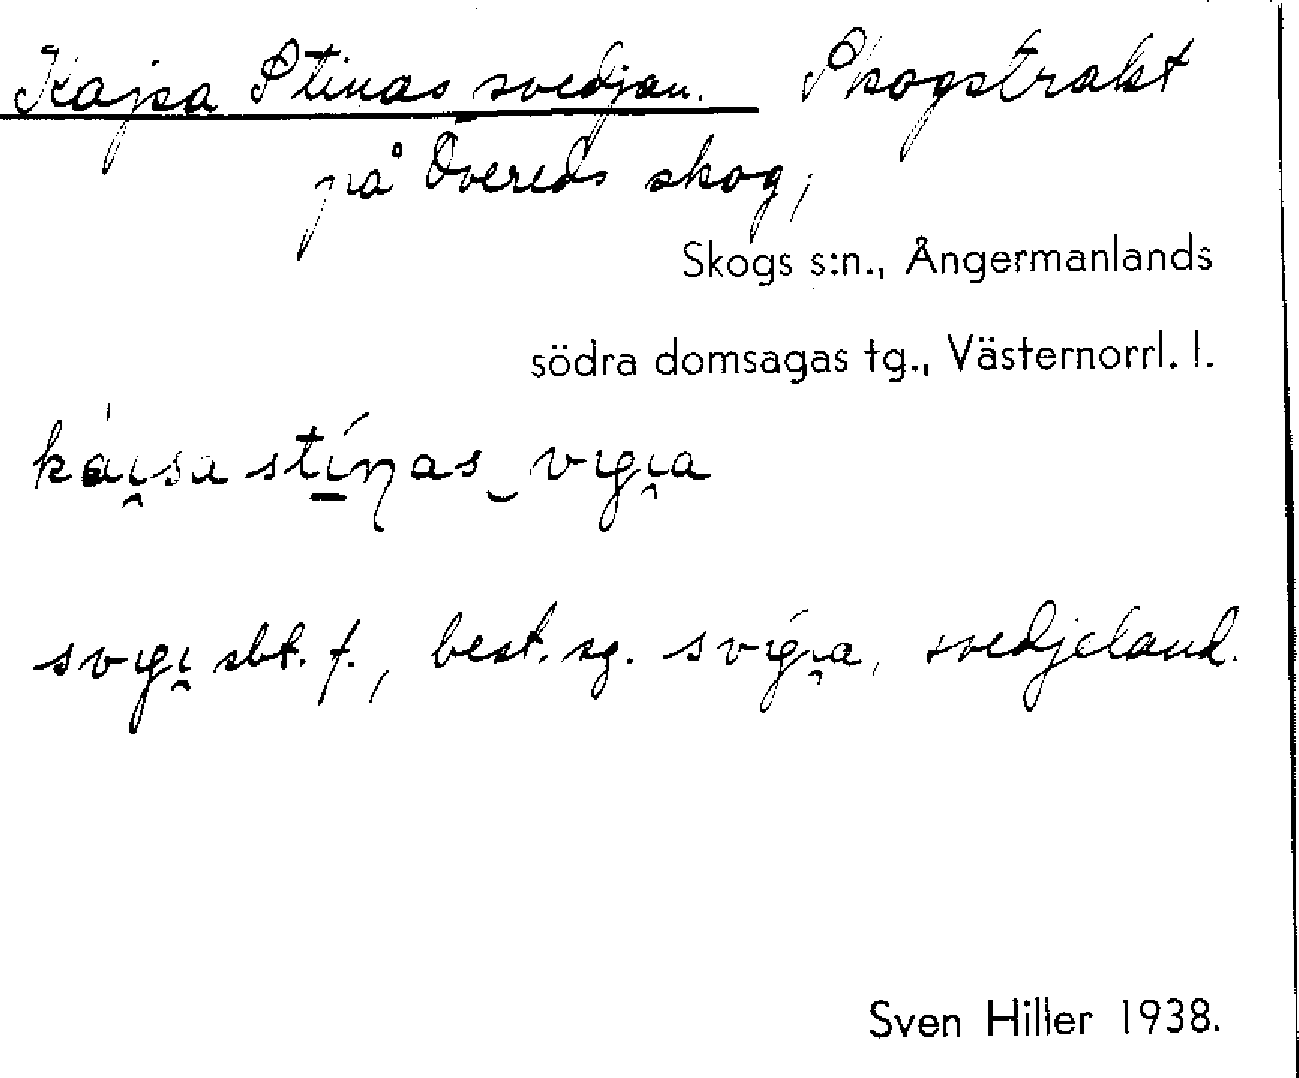 Kajsa Stinas svedjan. Skogstrakt
på Övereds skog,
Skogs s:n., Ångermanlands
södra domsagas tg., Västernorrl. l.
káı̯sa stíṉas‿vıgı̯a
svıgı̯ sbt. f., best. sg. svígı̯a, svedjeland.
Sven Hiller 1938.